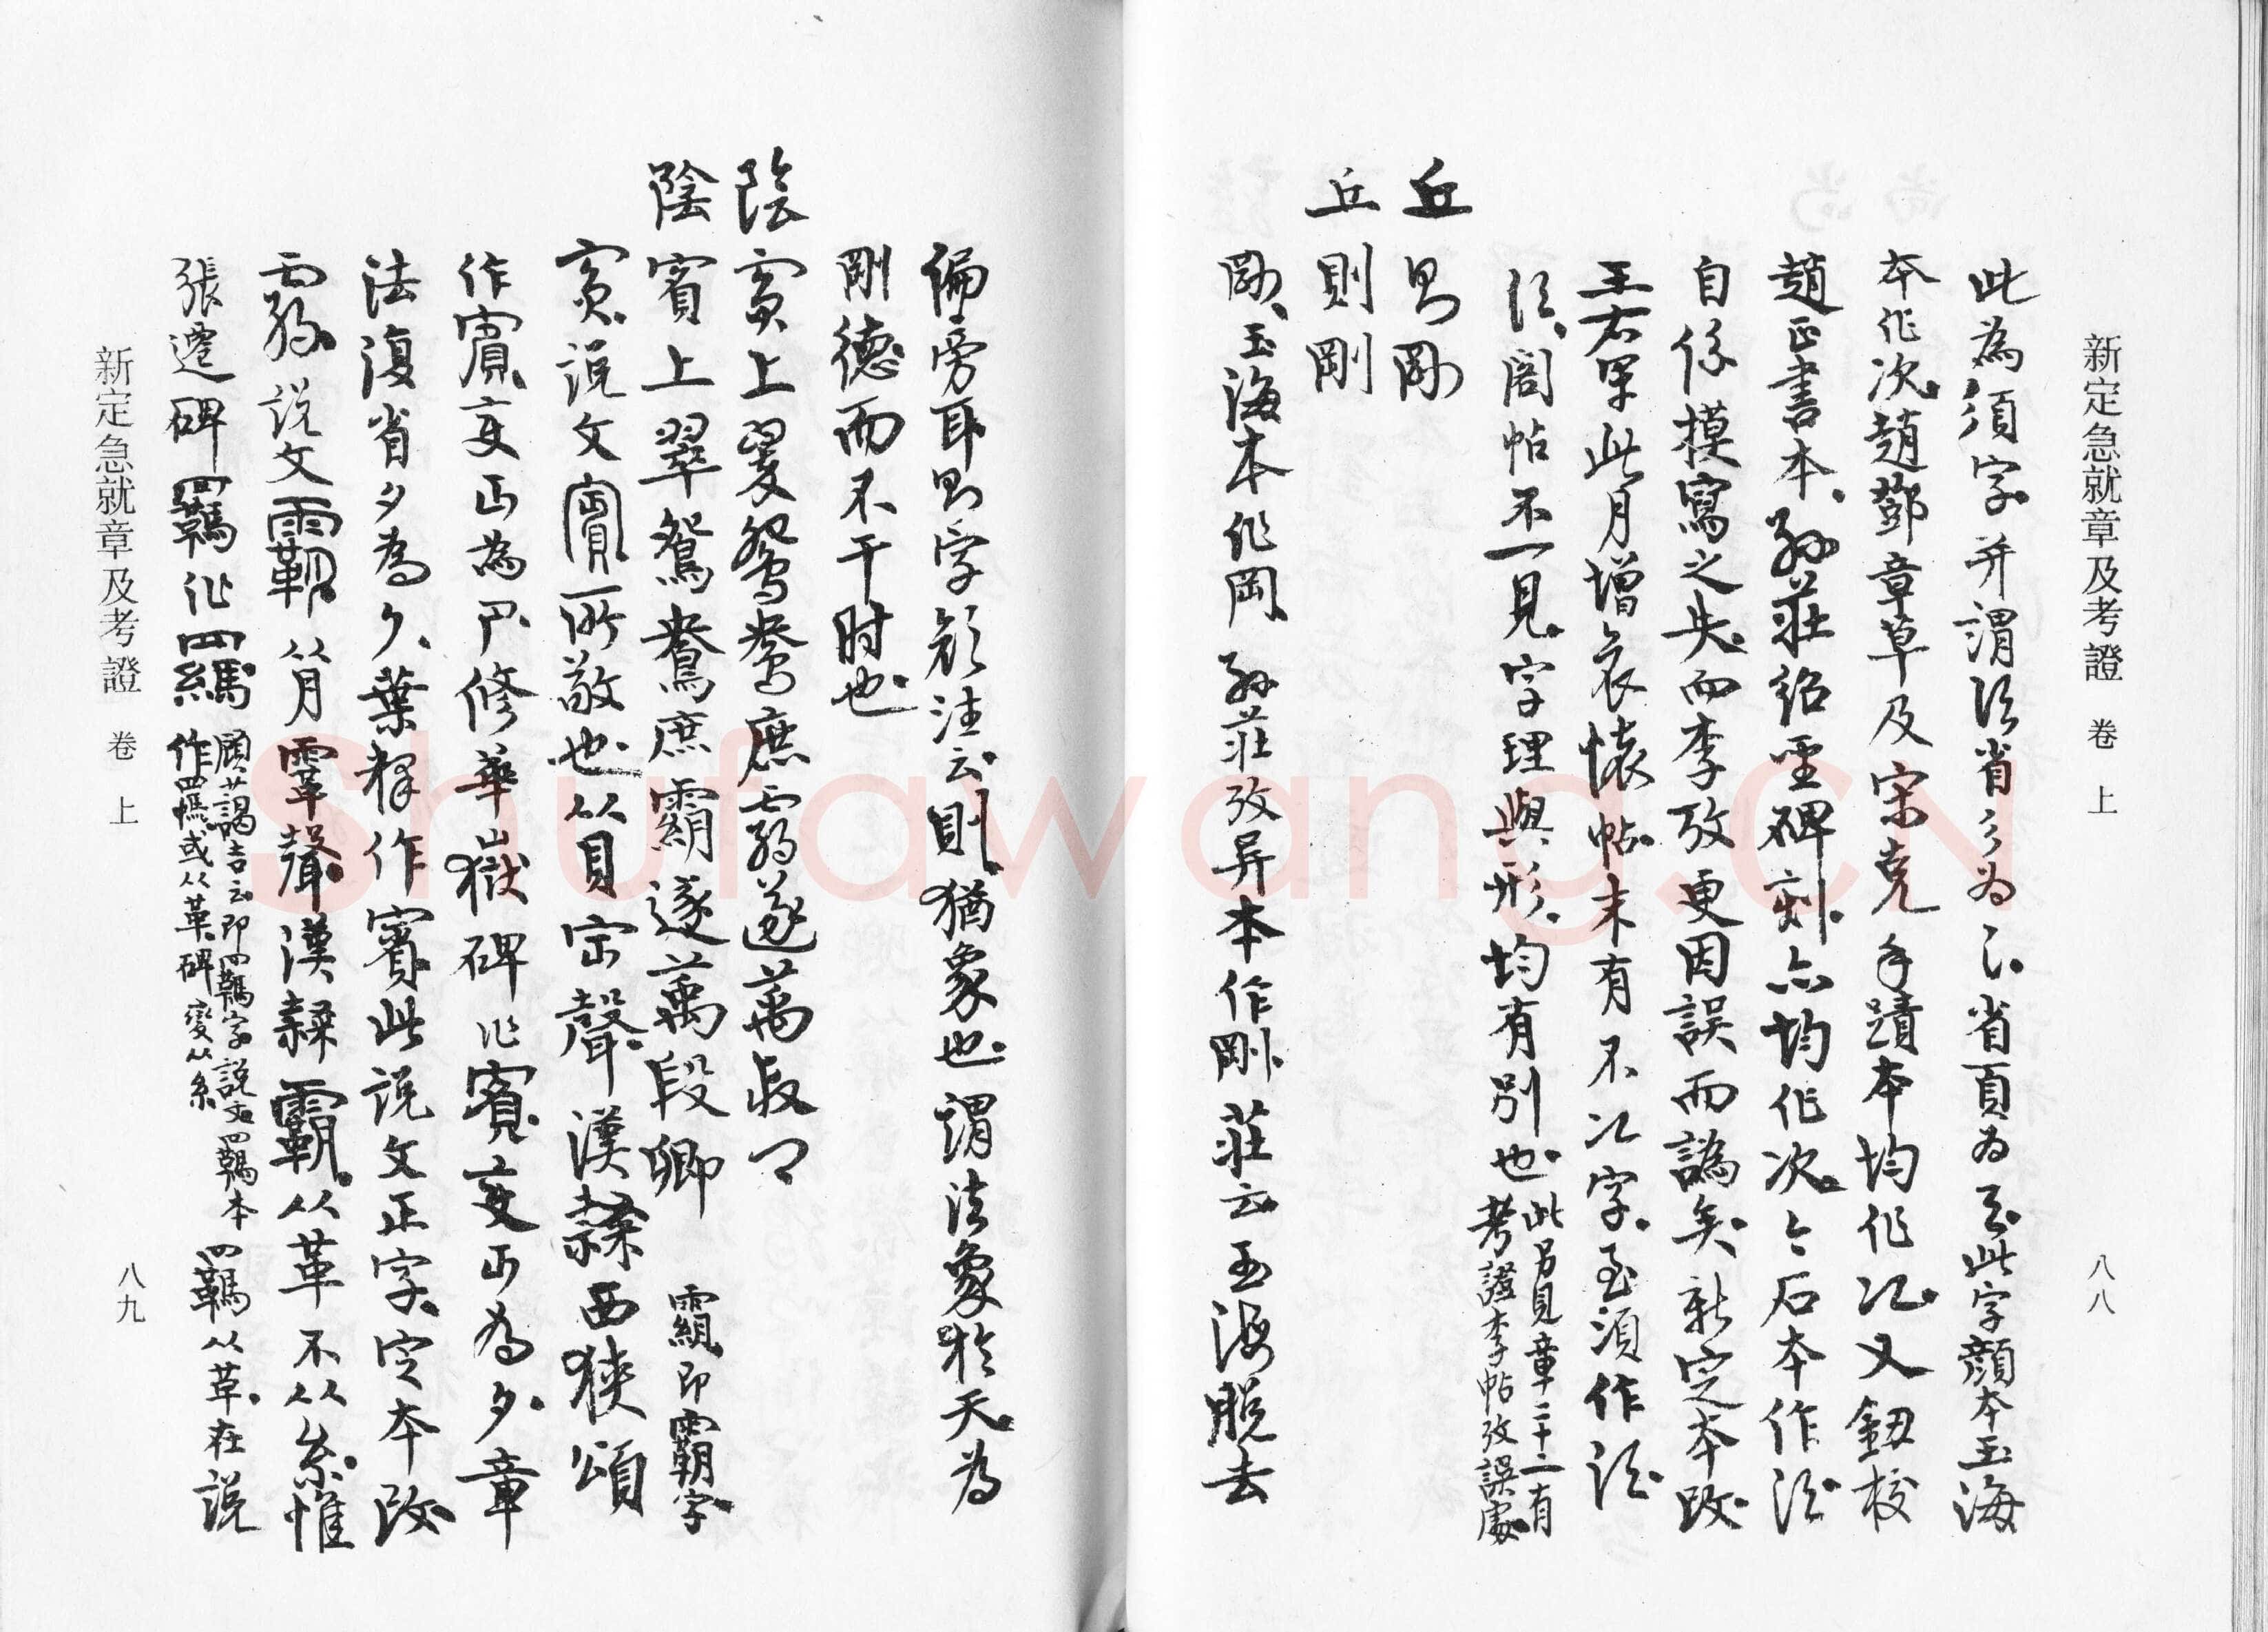 新定急就章及考證 卷上
八八
此為須字并謂須省彡為冫省頁為 此字顏本玉海
本作次趙鄧章草及宋克手蹟本均作次又鈕校
趙正書本孫莊紹聖碑刻亦均作次今石本作
自係摸寫之失而李攷更因誤而譌矣新定本改
王右軍此月增哀懷帖末有不次字至須作
須閣帖不一見字理與形均有別也 此另見章三十二有
考證李帖攷誤處
丘則剛
丘則剛
剛玉海本作岡孫莊攷异本作剛莊云玉海脫去
偏旁耳則字顏注云則猶象也謂法象於天為
剛德而不干時也
陰賓上翠鴛鴦庶霸遂萬段卿
陰賓上翠鴛鴦庶霸遂萬段卿 霸即霸字
賓說文賓所敬也从貝宀聲漢隸西狹頌
作賓变丏為尸修華嶽碑作賓变丏為夕章
法復省夕為ク葉釋作賓此說文正字定本改
霸說文霸从月䨣聲漢隸霸从革不从糸惟
張遷碑羈作羈 顧藹吉云即羈字說文羈本羈从革在說
作羈或从革碑變从糸
新定急就章及考證 卷上
八九
Shufawang.CN